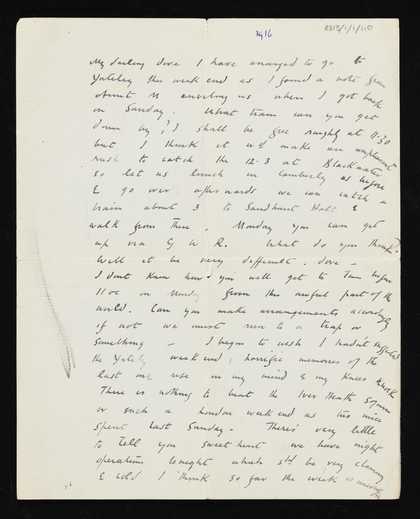 1916
My darling dove I have arranged to go to
Yateley this week end as I found a note from
 us when I got back
on Sunday. What train can you get
down by? I shall be free roughly at 11-30
but I think it wd make an unpleasant
rush to catch the 12-3 at Blackwater
so let us lunch in Camberley as before
& go over afterwards we can catch a
train about 3 to Sandhurst Halt &
walk from there. Monday you can get
up via G W R. What do you think?
Will it be very difficult, dove -
I dont know how you will get to Town before
11 oc on Monday from this awful part of the
world. Can you make arrangements accordingly
if not we must run to a trap or
something - I begin to wish I hadn't suggested
the Yateley week end, horrific memories of the
last one rise in my mind & my knees knock
There is nothing to beat the Iver Heath
or such a London week end as this mice
spent last Sunday. There's very little
to tell you sweet heart we have night
operations tonight which shd be very clammy
& cold I think so far the week is